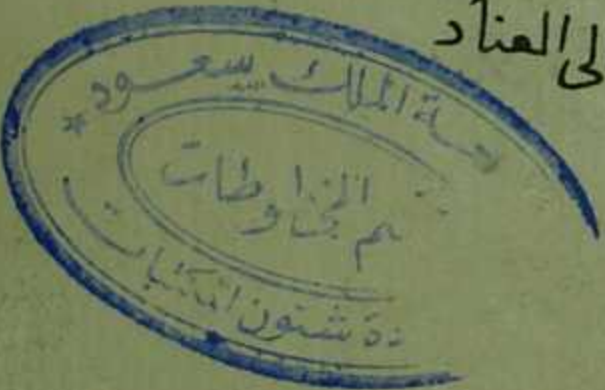 لى العناد
جامعة الملك سعود *
قسم المخطوطات
عمادة شئون المكتبات